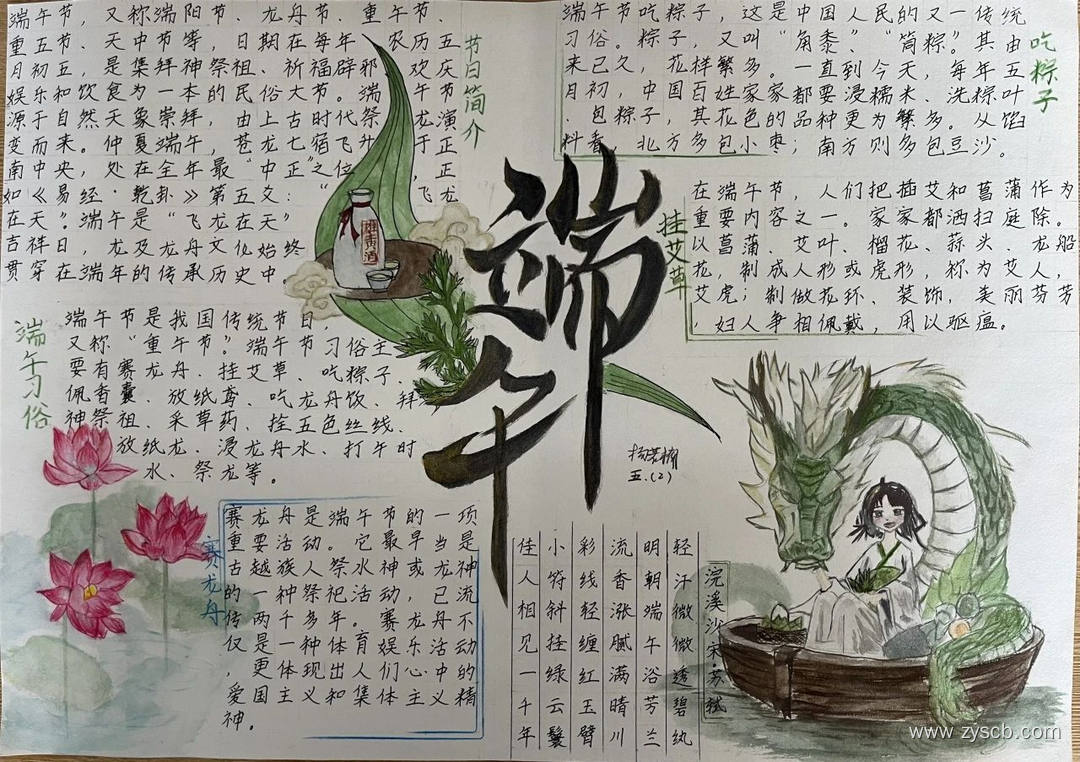 节日简介
端午节，又称端阳节、龙舟节、重午节
重五节、天中节等，日期在每年 农历五
月初五，是集拜神祭祖、祈福辟邪 欢庆
娱乐和饮食为一本的民俗大节。端 午节
源于自然天象崇拜，由上古时代祭 龙演
变而来。仲夏端午，苍龙七宿飞升 于正
南中央，处在全年最“中正”之位 正
如《易经·乾卦》第五爻：“ 飞龙
在天”。端午是“飞龙在天”
吉祥日 龙及龙舟文化始终
贯穿在端午的传承历史中
吃粽子
端午节吃粽子，这是中国人民的又一传统
习俗。粽子，又叫“角黍”、“筒粽”。其由
来已久，花样繁多。一直到今天，每年五
月初，中国百姓家家都要浸糯米、洗粽叶
、包粽子，其花色的品种更为繁多。从馅
料看 北方多包小枣；南方则多包豆沙。
挂艾草
在端午节，人们把插艾和菖蒲作为
重要内容之一。家家都洒扫庭除。
以菖蒲 艾叶、榴花、蒜头、龙船
花，制成人形或虎形，称为艾人，
艾虎；制做花环、装饰，美丽芬芳
，妇人争相佩戴，用以驱瘟。
雄黄酒
端午
端午习俗
端午节是我国传统节日，
又称“重午节”。端午节习俗主
要有赛龙舟、挂艾草、吃粽子、
佩香囊、放纸鸢、吃龙舟饭、拜
神祭祖、采草药、挂五色丝线、
放纸龙、浸龙舟水、打午时
水、祭龙等。
五.（2）
赛龙舟
赛龙舟是端午节的一项
重要活动。它最早当是
古越族人祭水神或龙神
的一种祭祀活动，已流
传两千多年。赛龙舟不
仅是一种体育娱乐活动
，更体现出人们心中的
爱国主义和集体主义精
神。
浣溪沙 宋·苏轼
轻汗微微透碧纨
明朝端午浴芳兰
流香涨腻满晴川
彩线轻缠红玉臂
小符斜挂绿云鬟
佳人相见一千年
www.zyscb.com